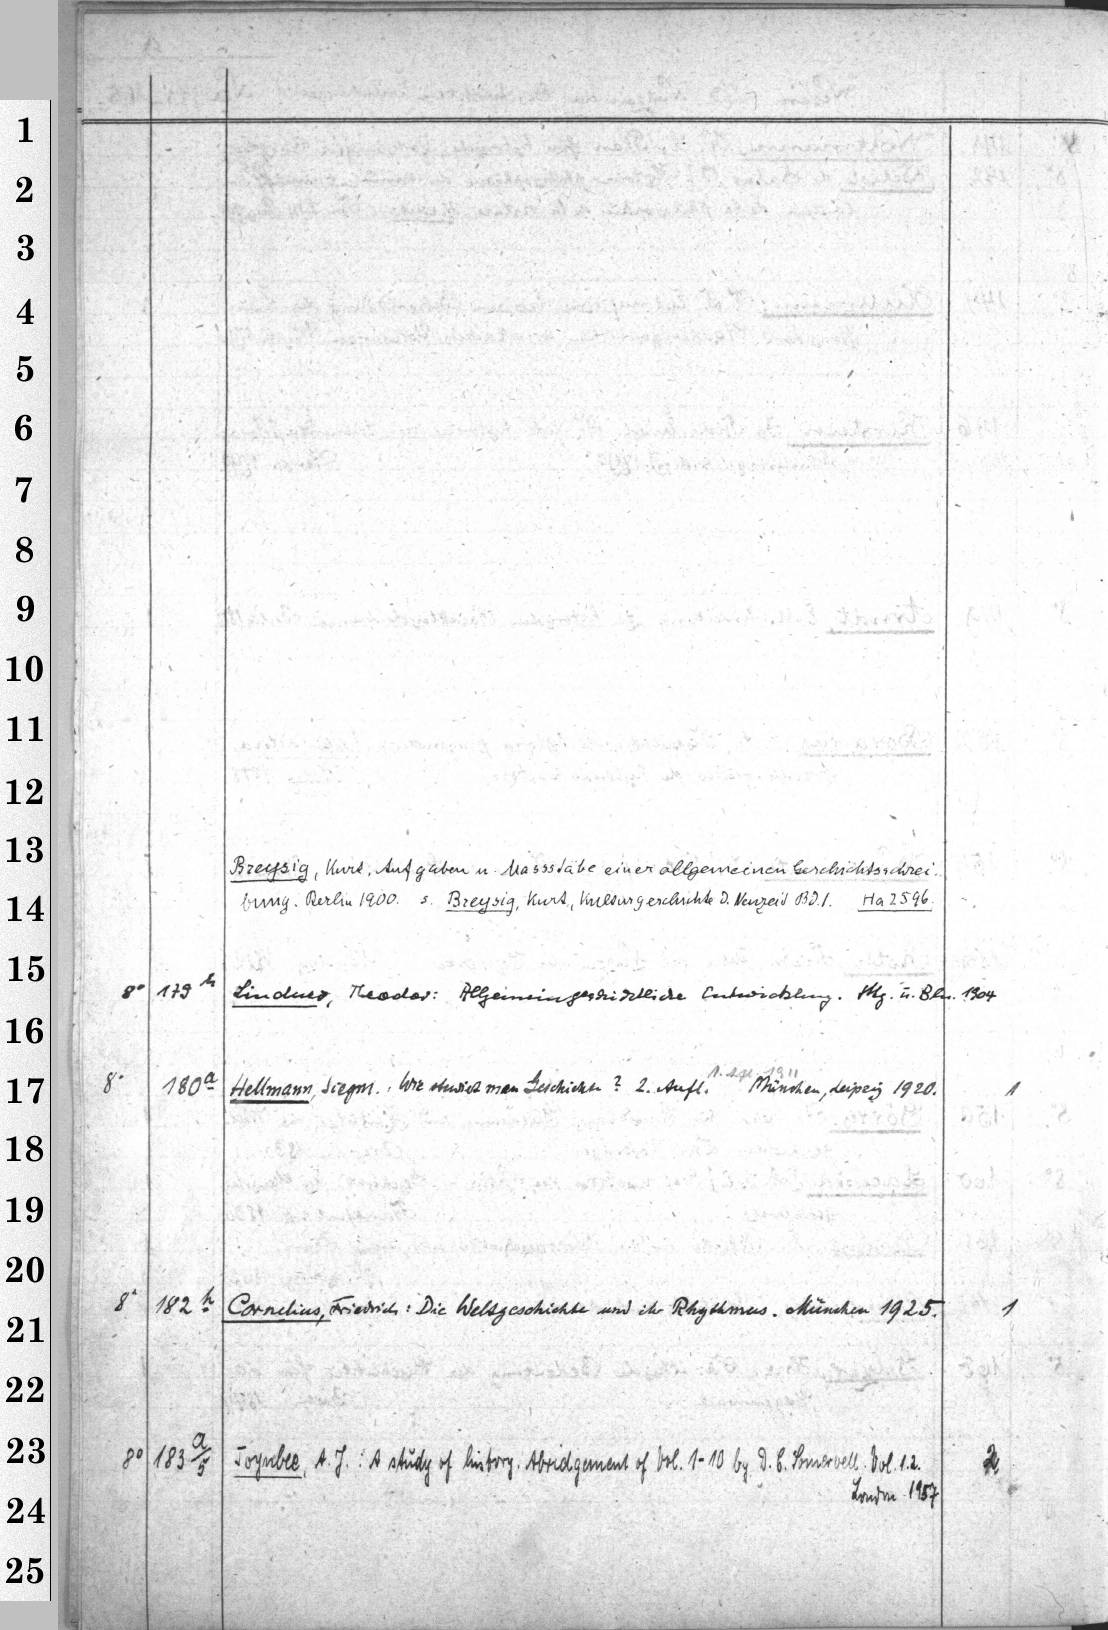 1
2
3
4
5
6
7
8
9
10
11
12
13
Breysig, Kurt, Aufgaben u. Massstäbe einer allgemeinen Geschichtsschrei-
14
bung. Berlin 1900. s. Breysig, Kurt, Kulturgeschichte d. Neuzeit Bd. 1. Ha 2596.
15
8° 179 h Lindner, Theodor: Allgemeingeschichtliche Entwicklung. Stg. u. Bln. 1904
16
17
8° 180 a Hellmann, Siegm.: Wie studiert man Geschichte? 2. Aufl. München, Leipzig 1920. 1
18
19
20
8° 182 h Cornelius, Friedrich: Die Weltgeschichte und ihr Rhythmus. München 1925. 1
21
22
23
8° 183 a/5 Toynbee, A. J.: A study of history. Abridgement of Vol. 1-10 by D. C. Somervell. Vol. 1.2. 2
London 1957
24
25